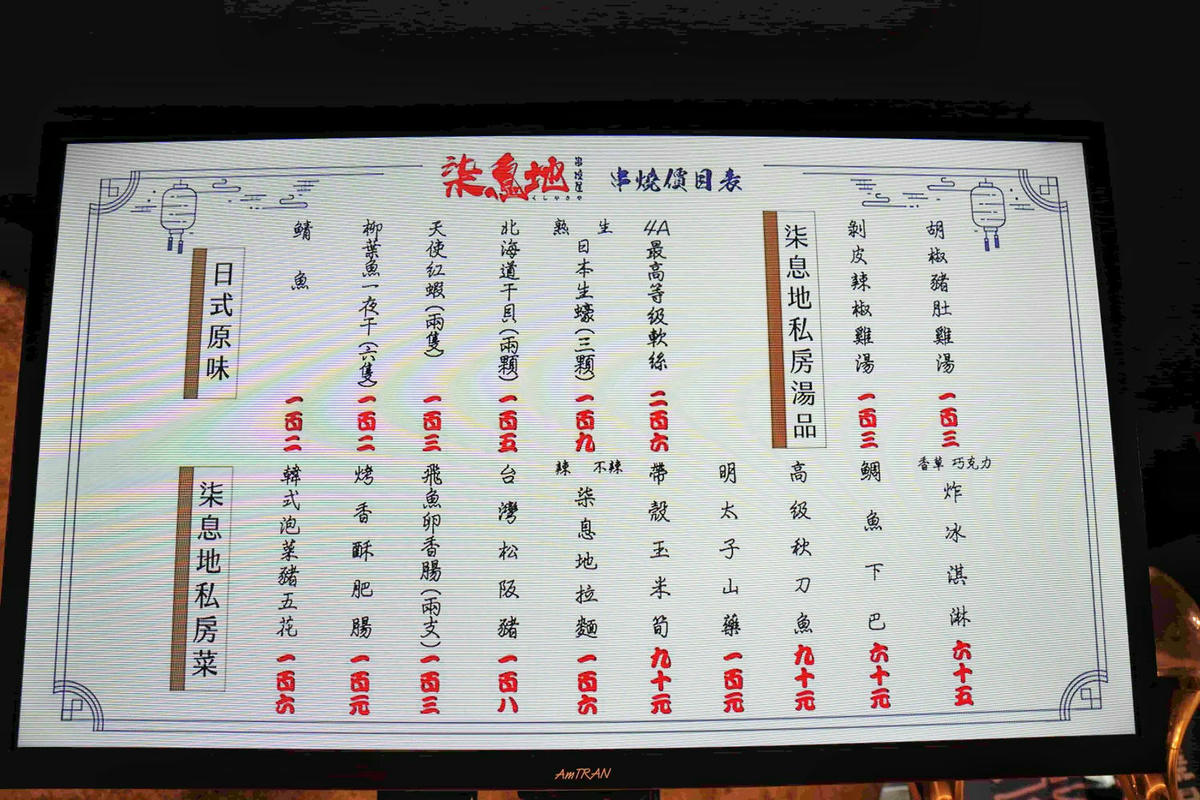 柒息地
串燒屋
くしやきや
串燒價目表
胡椒豬肚雞湯 一百三
剝皮辣椒雞湯 一百三
柒息地私房湯品
4A最高等級軟絲 二百六
生 熟
日本生蠔(三顆) 一百九
北海道干貝(兩顆) 一百五
天使紅蝦(兩隻) 一百三
柳葉魚一夜干(六隻) 一百二
鯖魚 一百二
日式原味
香草 巧克力
炸冰淇淋 六十五
鯛魚下巴 六十元
高級秋刀魚 九十元
明太子山藥 一百元
帶殼玉米筍 九十元
不辣 辣
柒息地拉麵 一百六
台灣松阪豬 一百八
飛魚卵香腸(兩支) 一百三
烤香酥肥腸 一百元
韓式泡菜豬五花 一百六
柒息地私房菜
AmTRAN